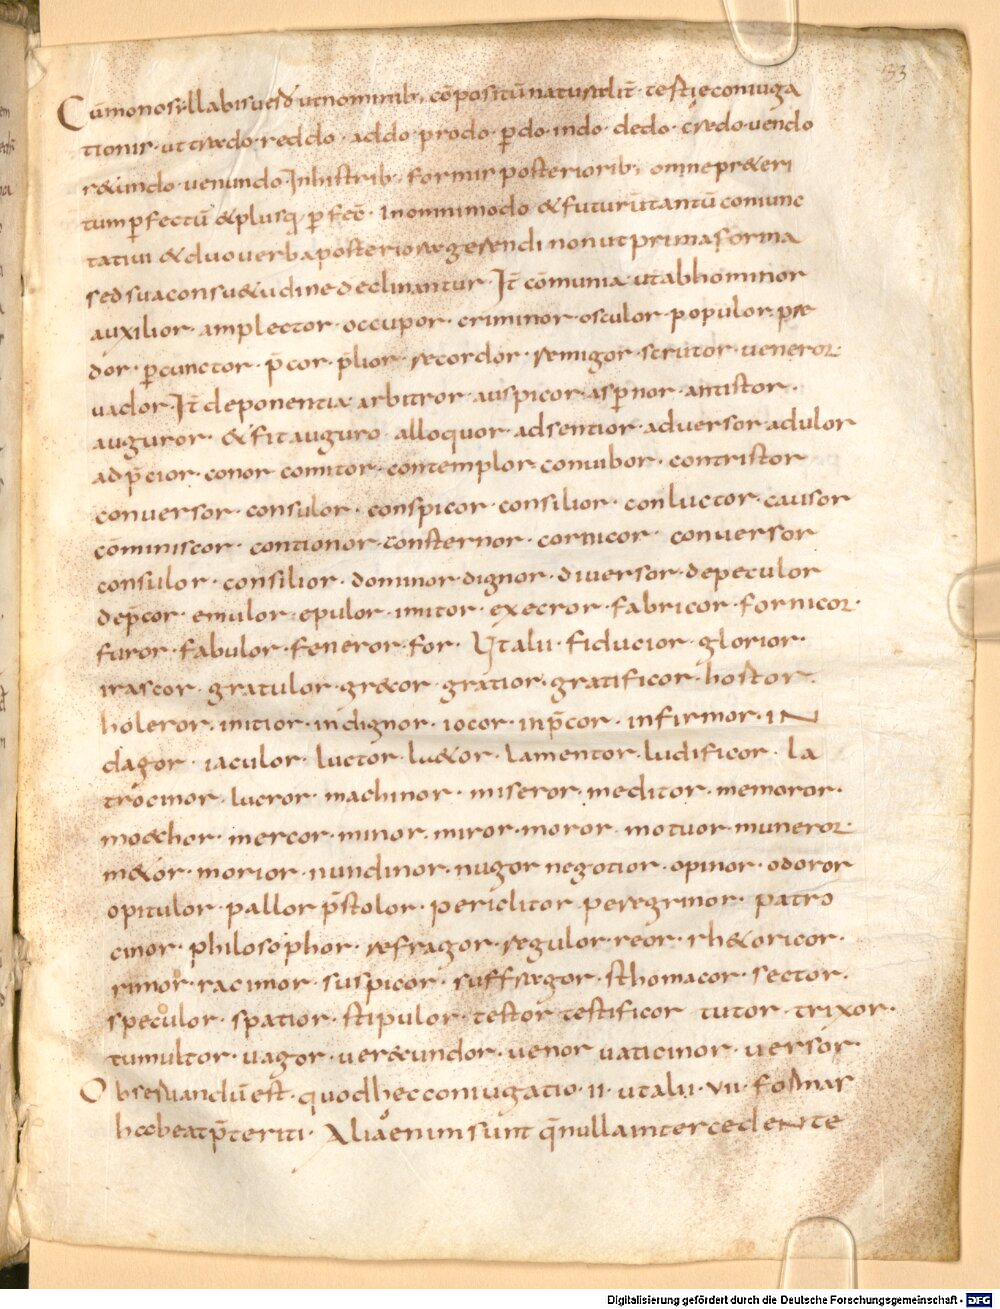 153
Cūmonosyllabis uerbū ut nominib; cōpositū natura elit̄ testie coniuga
tionis · ut trado · reddo · addo · prodo · ꝑdo · indo · dedo · credo · uendo
r&undo · uenundo In histrib; formis posteriorib; omne pr&eri
tum ꝑfectū &plusq; ꝑfec̄t · Inomnimodo &futurūtantū coniunc
tatiui &duo uerba posteriora gerendi non ut prima forma
sed sua consu&udine declinantur · It̄ cōmunia · utabhominor
auxilior · amplector · occupor · criminor · osculor · populor · præ
dor · ꝑcunctor · p̄cor · p̄lior · recordor · remigor · scrutor · ueneror ·
uador · It̄ deponentia arbitror · auspicor · asꝑnor · antistor ·
auguror · &fit auguro · alloquor · adsentior · aduersor · adulor
adp̄cior · conor comitor · contemplor conuibor · contristor
conuersor · consulor · conspicor · consilior · conluctor · causor
cōminiscor · contionor · consternor · cornicor · conuersor
consulor · consilior · dominor · dignor · diuersor · depeculor
dep̄cor · emulor · epulor · imitor · execror · fabricor · fornicor ·
furor · fabulor · feneror · for · Ut alii · fiducior · glorior ·
irascor · gratulor · gr&or · gratior · gratificor · hostor ·
holeror · initior · indignor · iocor · inp̄cor · infirmor · IN
dagor · iaculor · luctor · lu&or · lamentor · ludificor · la
trocinor · lucror · machinor · miseror · meditor · memoror ·
mo&hor · mercor · minor · miror · moror · motuor · muneror ·
m&or · morior · nundinor · nugor negotior · opinor · odoror
opitulor · pallor p̄stolor · periclitor · peregrinor · patro
cinor · philosophor · refragor · regulor · reor · rh&oricor ·
rimor · racimor · suspicor · suffragor · sthomacor · sector ·
speculor · spatior · stipulor · testor testificor tutor · trixor ·
tumultor · uagor · uer&cundor · uenor uaticinor · uersor ·
Obseruandū est · quod hec coniugatio · II · ut alii · VII · formas
habeat p̄teriti · Aliae enim sunt q̄ nulla intercedente
Digitalisierung gefördert durch die Deutsche Forschungsgemeinschaft - DFG